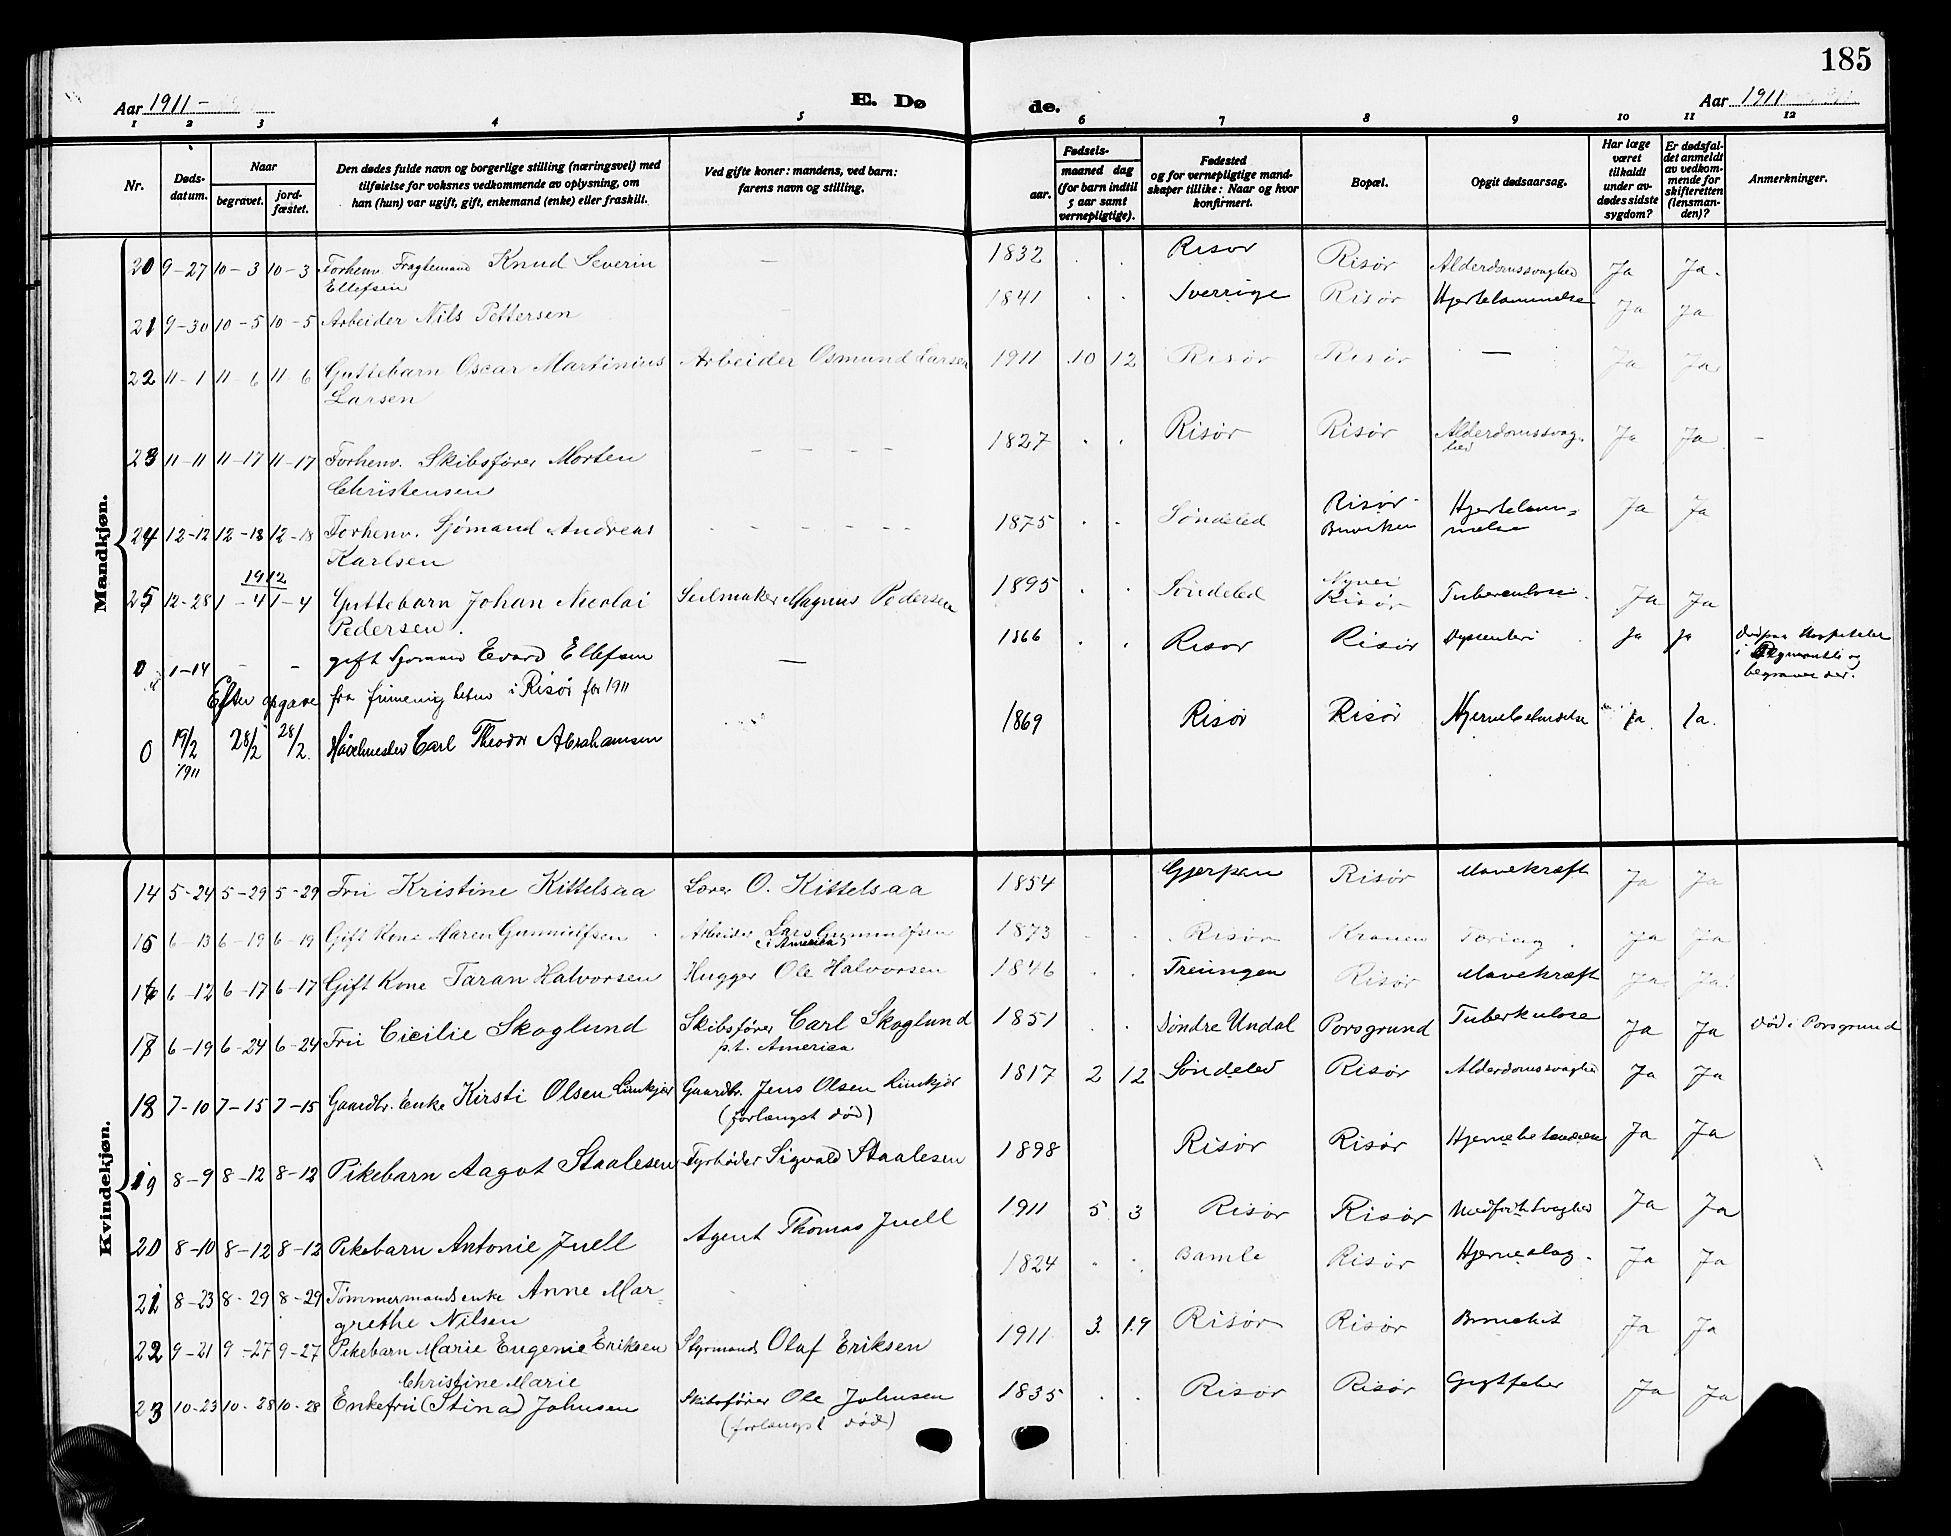 185
Aar 1911 - E. Dø de. Aar 1911
1 2 3 4 5 6 7 8 9 10 11 12
Nr. Døds-datum. Naar begravet. jord-fæstet. Den dødes fulde navn og borgerlige stilling (næringsvei) med tilføielse for voksnes vedkommende av oplysning, om han (hun) var ugift, gift, enkemand (enke) eller fraskilt. Ved gifte koner: mandens, ved barn: farens navn og stilling. Fødsels- aar. maaned dag (for barn indtil 5 aar samt vernepligtige). Fødested og for vernepligtige mand-skaper tillike: Naar og hvor konfirmert. Bopæl. Opgit dødsaarsag. Har læge været tilkaldt under av-dødes sidste sygdom? Er dødsfal-det anmeldt av vedkom-mende for skifteretten (lensman-den)? Anmerkninger.
Mandkjøn.
20 9-27 10-3 10-3 Forhenv. Fragtemand Knud Severin Ellefsen — 1832 . . Risør Risør Alderdomssvaghed Ja Ja.
21 9-30 10-5 10-5 Arbeider Nils Pettersen - 1841 . . Sverrige Risør Hjertelammelse Ja Ja
22 11-1 11 6 11 6 Guttebarn Oscar Martinius Larsen Arbeider Osmund Larsen 1911 10 12 Risør Risør — Ja Ja
23 11-11 11-17 11-17 Forhenv. Skibsfører Morten Christensen - - - - - 1827 . . Risør Risør Alderdomssvag-hed Ja Ja -
24 12-12 12-18 12-18 Forhenv. Sjömand Andreas Karlsen - - - - - - 1875 . . Søndeled Risør- Buviken Hjertelam-melse Ja Ja
1912
25 12-28 1-4 1-4 Guttebarn Johan Nicolai Pedersen. Seilmaker Magnus Pedersen 1895 . . Søndeled Nyvei Risør Tuberculose. Ja Ja
0 1-14 - - gift Sjømand Evard Ellefsen — 1866 . . Risør Risør Dyssenteri Ja Ja død paa Hospitalet i og begravet der.
Efter opgave fra frimenigheten i Risør for 1911
0 19/2 1911 28/2 28/2. Carl Theodor Abrahamsen 1869 Risør Risør Hjernebetændelse Ja. Ja.
Kvindekjøn.
14 5-24 5-29 5-29 Fru Kristine Kittelsaa Lærer O. Kittelsaa 1854 Gjerpen Risør Mavekræft Ja Ja
15 6-13 6-19 6-19 Gift Kone Maren Gunnulfsen Arbeider Lars Gunnulfsen (i Amerika) 1873 . . Risør Kranen Tæring. Ja Ja
16 6-12 6-17 6-17 Gift Kone Taran Halvorsen Hugger Ole Halvorsen 1846 . . Treungen Risør Mavekræft Ja Ja
17 6-19 6-24 6-24 Fru Cicilie Skoglund Skibsfører Carl Skoglund p.t. America 1851 . . Søndre Undal Porsgrund Tuberkulose Ja Ja død i Porsgrund
18 7-10 7-15 7-15 Gaardbr. Enke Kirsti Olsen Limkjær Gaardbr. Jens Olsen Limkjær (forlængst død) 1817 2 12 Søndeled Risør Alderdomssvaghed Ja Ja
19 8-9 8-12 8-12 Pikebarn Aagot Staalesen Fyrbøder Sigvald Staalesen 1898 Risør Risør Hjernebetændelse Ja Ja
20 8-10 8-12 8-12 Pikebarn Antonie Juell Agent Thomas Juell 1911 5 3 Risør Risør Medfødt Svaghed Ja Ja
21 8-23 8-29 8-29 Tømmermandsenke Anne Mar-grethe Nilsen 1824 . . Bamle Risør Hjerneslag. Ja Ja
22 9-21 9-27 9-27 Pikebarn Marie Eugenie Eriksen Styrmand Olaf Eriksen 1911 3. 19 Risør Risør Ja Ja
23 10-23 10-28 10-28 Enkefru Christine Marie (Stina) Johnsen Skibsfører Ole Johnsen (forlængst død) 1835 . . Risør Risør Gigtfeber Ja Ja